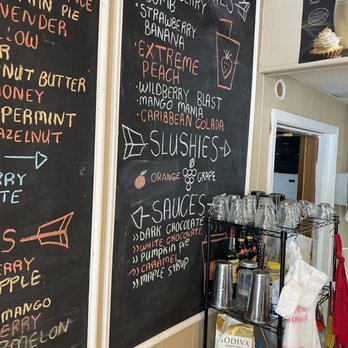 PIE
LAVENDER
NUT BUTTER
HONEY
PEPPERMINT
HAZELNUT
MANGO
STRAWBERRY
BANANA
EXTREME
PEACH
WILDBERRY BLAST
MANGO MANIA
CARIBBEAN COLADA
SLUSHIES
ORANGE
GRAPE
SAUCES
DARK CHOCOLATE
WHITE CHOCOLATE
PUMPKIN PIE
CARAMEL
MAPLE SYRUP
GODIVA